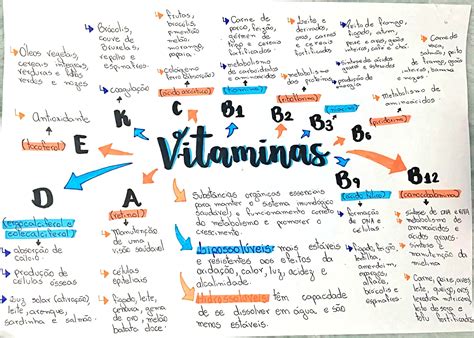 Óleos vegetais,
cereais integrais,
verduras e folhas
verdes e nozes
Antioxidante
(tocoferol)
E
Brócolis,
couve de
Bruxelas,
repolho e
espinafres.
coagulação
K
frutas,
brócolis,
pimentão
melão,
morango,
papaia
(ácido ascórbico)
C
Carne de
porco, feijão,
gérmen de
trigo e cereais
fortificados
metabolismo
de carboidratos
e aminoácidos
(tiamina)
B1
Leite e
derivados,
carnes e
cereais
fortificados
metabolismo
dos proteínas
(riboflavina)
B2
Peito de frango,
fígado, atum,
integrais, café e chá.
produção de
energia
(niacina)
B3
Carne de
vaca,
salmão,
peito de
frango, grãos
e cereais integrais,
banana
e nozes
metabolismo de
aminoácidos
(piridoxina)
B6
Vitaminas
D
(ergocalciferol e
colecalciferol)
absorção de
cálcio
produção de
células ósseas
luz solar (ativação),
leite, arenque,
sardinha e salmão.
A
(retinol)
Manutenção
de uma
visão saudável
células
epiteliais
fígado, leite,
cenoura, gema
de ovo, melão
batata doce
Substâncias orgânicas essenciais
para manter o sistema imunológico
saudável, e funcionamento correto
do metabolismo e promover o
crescimento
lipossolúveis: mais estáveis
e resistentes aos efeitos da
oxidação, calor, luz, acidez e
alcalinidade.
hidrossolúveis: têm capacidade
de se dissolver em água e são
menos estáveis.
B9
(ácido fólico)
formação
de DNA e
células
Fígado, feijão,
batata,
amendoim,
aspargos,
brócolis e
espinafres.
B12
(cianocobalamina)
síntese de DNA e RNA
metabolismo
de aminoácidos
e ácidos
graxos
síntese e
manutenção
da mielina
Carne, peixe, aves,
leite, queijo, ovos,
levedura nutricional,
leite de soja e
tofu fortificados